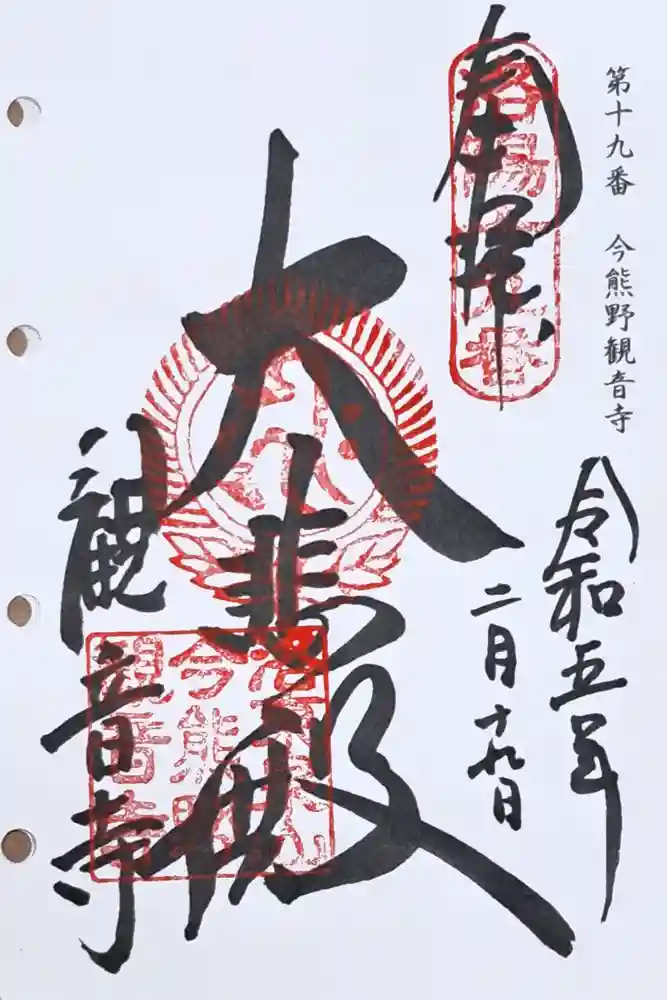 第十九番　今熊野観音寺
奉拝
令和五年
二月十九日
大悲殿
観音寺
今熊野
觀音寺